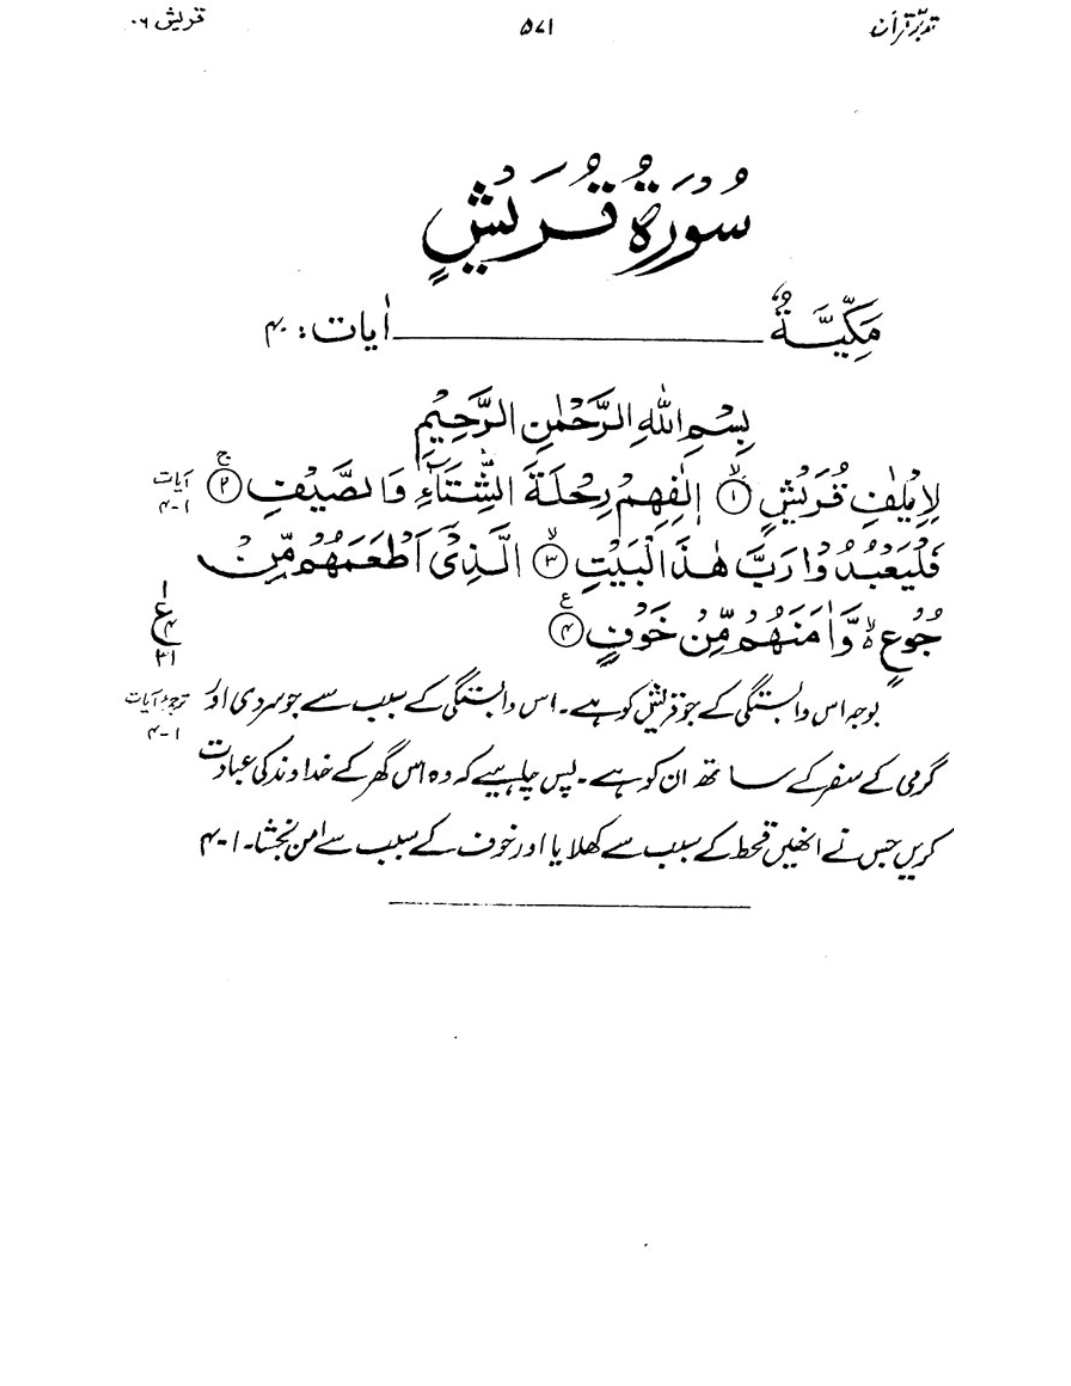 تدبّر قرآن ۵۷۱ قریش ۱۰۶
سُوْرَةُ قُرَيْشٍ
مَكِّيَّةٌ اٰيات: ۴
بِسْمِ اللّٰهِ الرَّحْمٰنِ الرَّحِيْمِ
لِاِيْلٰفِ قُرَيْشٍ ۙ﴿۱﴾ اٖلٰفِهِمْ رِحْلَةَ الشِّتَآءِ وَالصَّيْفِ ۚ﴿۲﴾ آیات ۱-۴
فَلْيَعْبُدُوْا رَبَّ هٰذَا الْبَيْتِ ۙ﴿۳﴾ الَّذِيْٓ اَطْعَمَهُمْ مِّنْ
جُوْعٍ ۙ وَّاٰمَنَهُمْ مِّنْ خَوْفٍ ﴿۴﴾ ع ۱ ۴ ۳۱
بوجہ اس وابستگی کے جو قریش کو ہے۔ اس وابستگی کے سبب سے جو سردی اور ترجمۂ آیات ۱-۴
گرمی کے سفر کے ساتھ ان کو ہے۔ پس چاہیے کہ وہ اس گھر کے خداوند کی عبادت
کریں جس نے انھیں قحط کے سبب سے کھلایا اور خوف کے سبب سے امن بخشا۔ ۱-۴